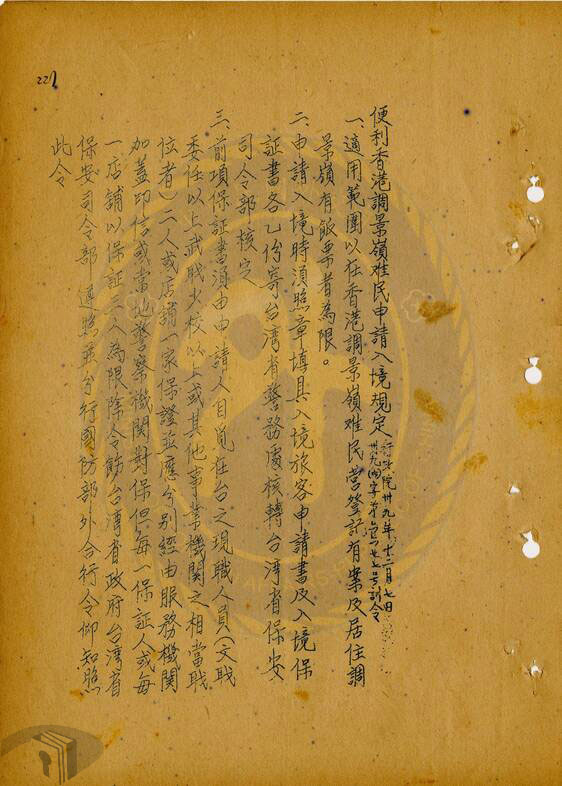 227
便利香港調景嶺难民申請入境規定
行政院卅九年十二月七日
卅九(四)字第 号訓令
一、適用範圍以在香港調景嶺难民营登記有案及居住調
景嶺有飯票者為限。
二、申請入境時須照章填具入境旅客申請書及入境保
証書各乙份寄台湾省警務處核轉台湾省保安
司令部核定
三、前項保証書須由申請人自覓在台之現職人員(文职
委任以上武职少校以上或其他事業機関之相當职
位者)二人或店鋪一家保證並應分别經由服務機関
加蓋印信或當地警察機関對保但每一保証人或每
一店舖以保証三人為限除令飭台湾省政府台湾省
保安司令部遵照並分行國防部外合行令仰知照
此令